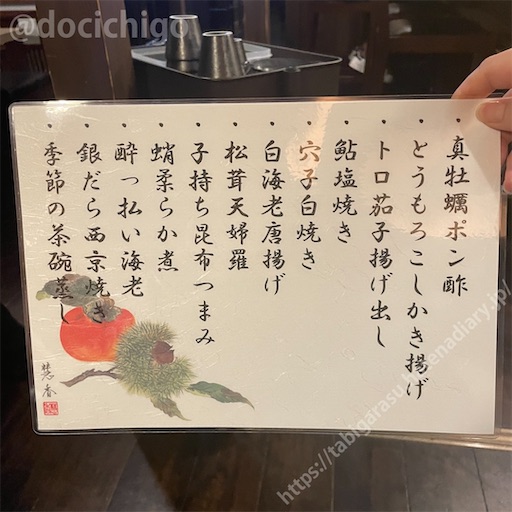 @docichigo
・真牡蠣ポン酢
・とうもろこしかき揚げ
・トロ茄子揚げ出し
・鮎塩焼き
・穴子白焼き
・白海老唐揚げ
・松茸天婦羅
・子持ち昆布つまみ
・蛸柔らか煮
・酔っ払い海老
・銀だら西京焼き
・季節の茶碗蒸し
https://tabigarasu.hatenadiary.jp/